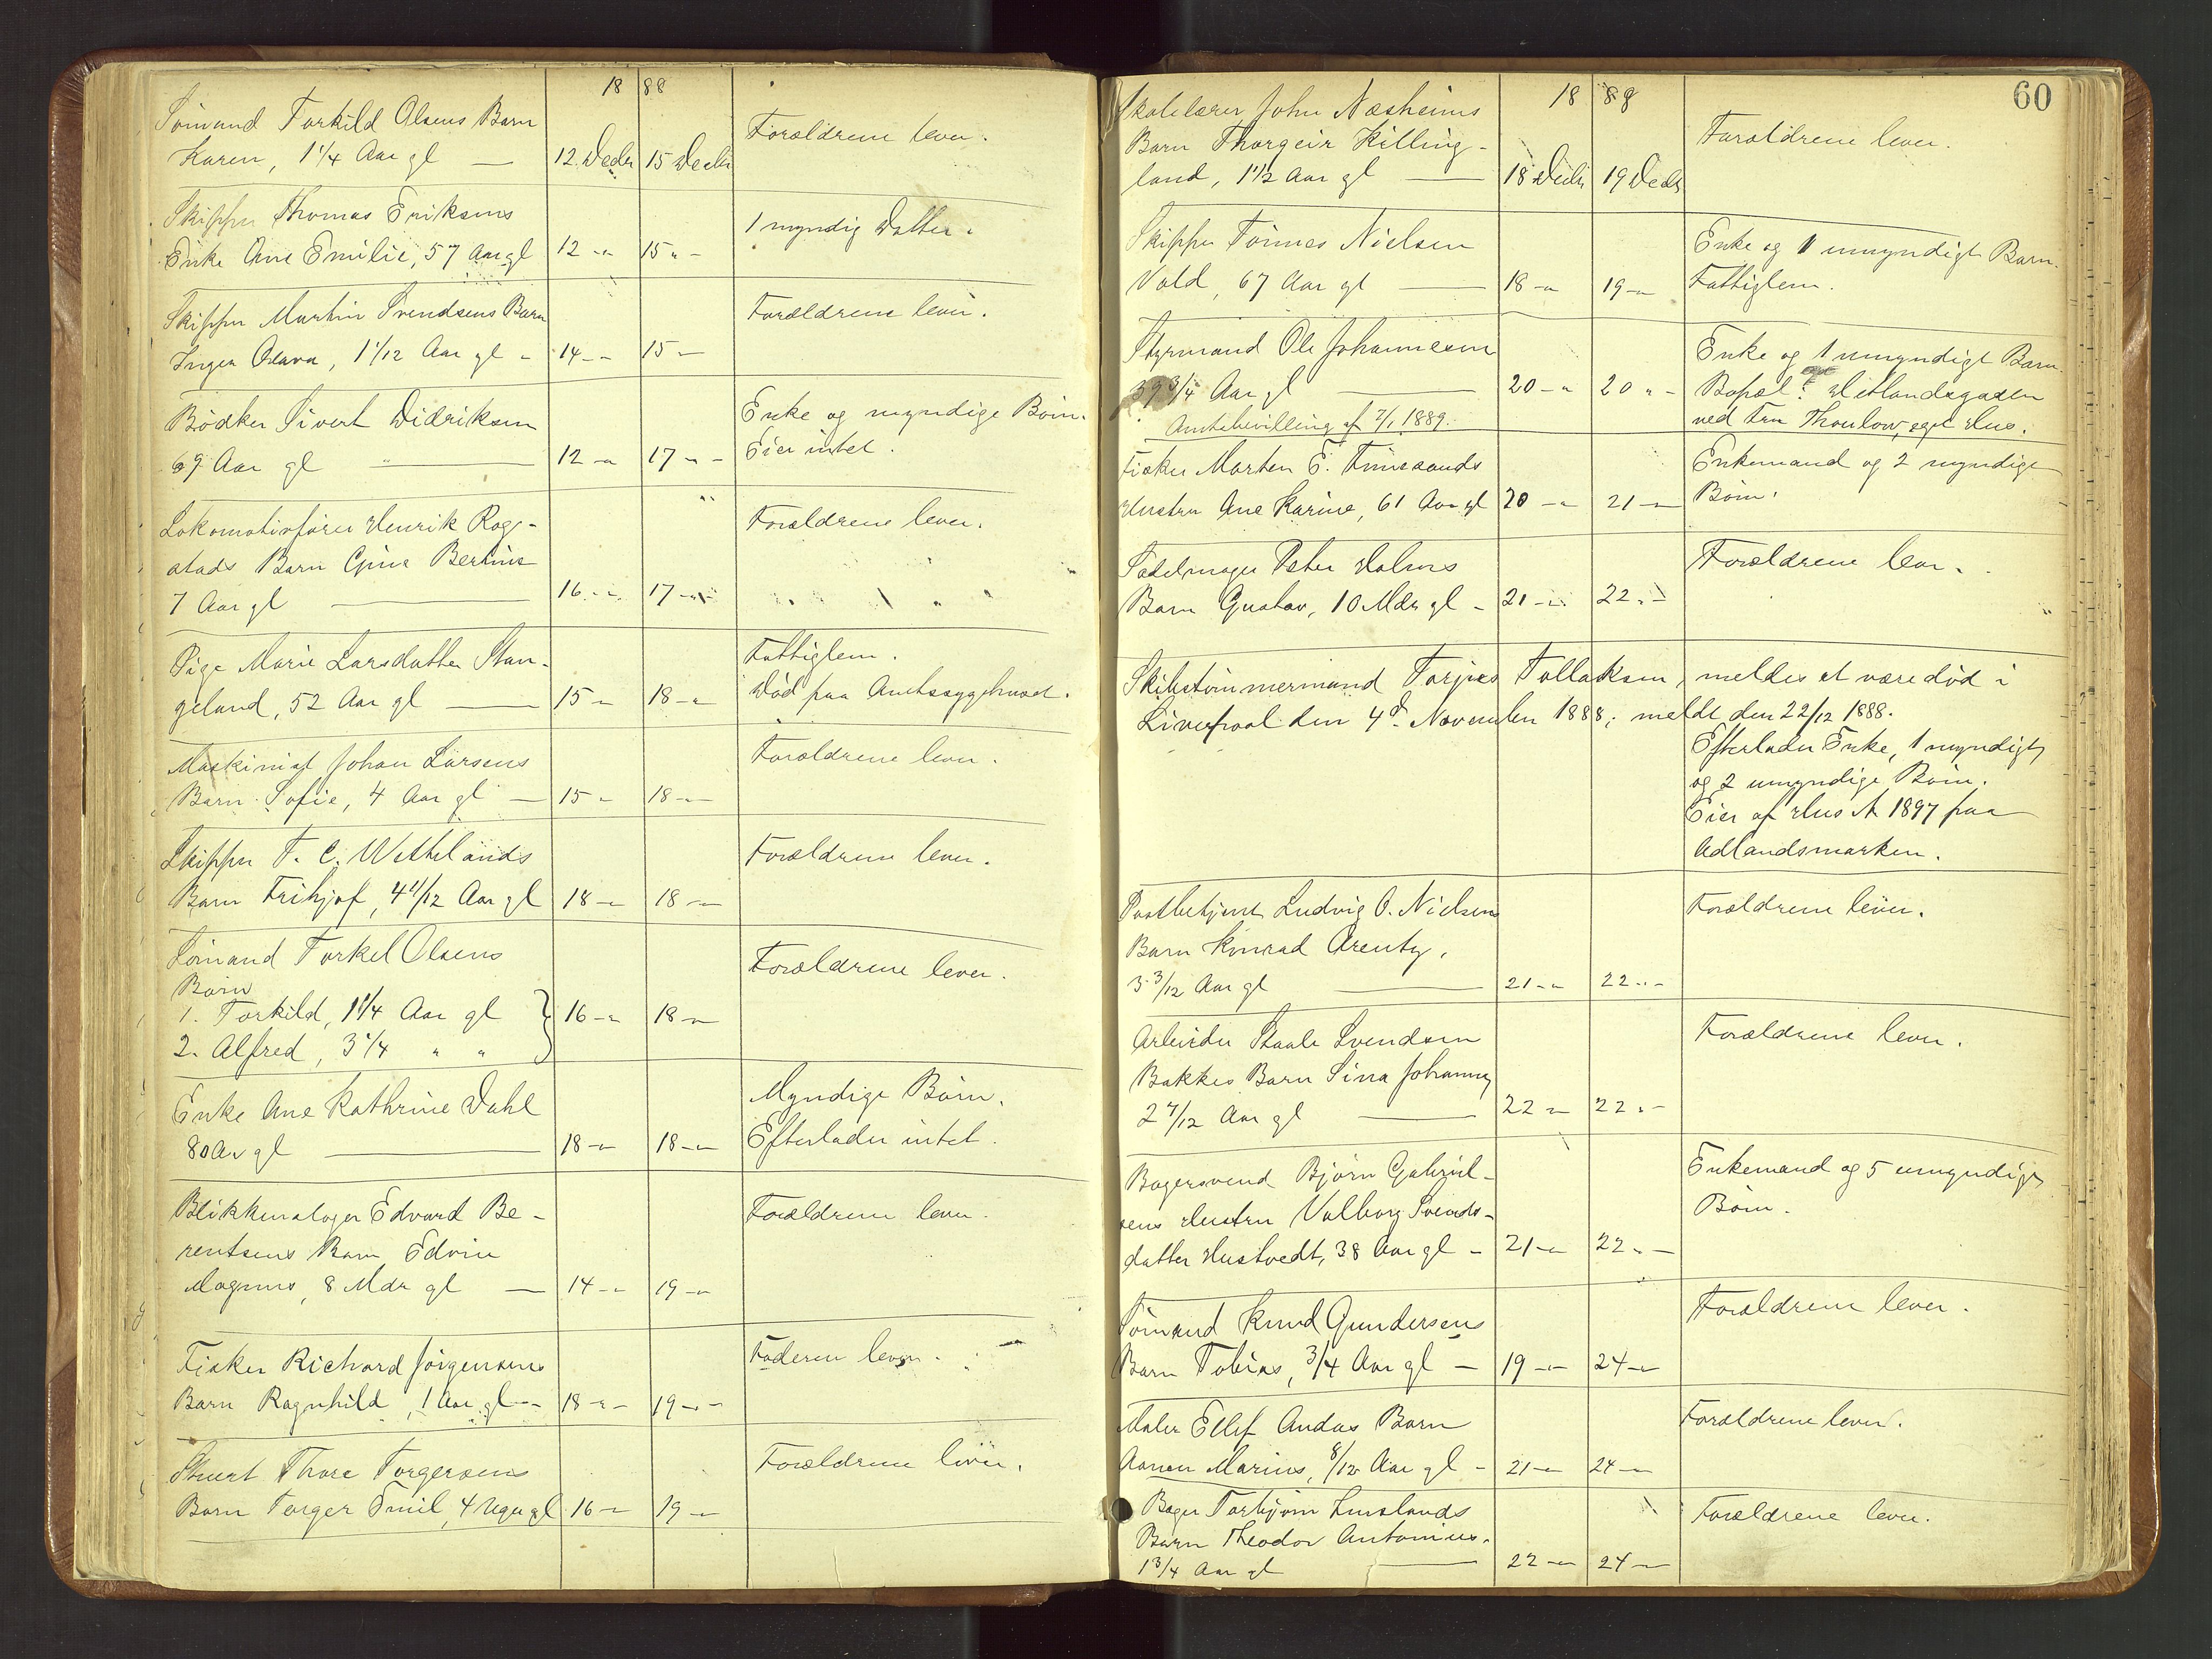 18 88
Sömand Torkild Olsens Barn
Karen, 1 1/4 Aar gl — 12 Decbr 15 Decbr Forældrene lever.
Skipper Thomas Eriksens
Enke Ane Emilie, 57 Aar gl 12 -"- 15 -"- 1 myndig Datter.
Skipper Martin Svendsens Barn
Inger Olava, 1 1/12 Aar gl - 14 -"- 15 -"- Forældrene lever.
Bödker Sivert Didriksen
69 Aar gl — 12 -"- 17 -"- Enke og myndige Börn.
Eier intet.
Lokomotivförer Henrik Rog-
stads Barn Gina Bertine
7 Aar gl — 16 -"- 17 -"- Forældrene lever.
Pige Marie Larsdatter Stan-
geland, 52 Aar gl — 15 -"- 18 -"- Fattiglem.
Död paa Amtssygehuset.
Maskinist Johan Larsens
Barn Sofie, 4 Aar gl — 15 -"- 18 -"- Forældrene lever.
Skipper T. C. Wethelands
Barn Frithjof, 4 11/12 Aar gl 18 -"- 18 -"- Forældrene lever.
Sömand Torkel Olsens
Börn
1. Torkild, 1 1/4 Aar gl } 16 -"- 18 -"- Forældrene lever.
2. Alfred, 3 1/4 " "
Enke Ane Kathrine Dahl
80 Aar gl — 18 -"- 18 -"- Myndige Börn.
Efterlader intet.
Blikkenslager Edvard Be-
rentsens Barn Edvin
Magnus, 8 Mdr gl — 14 -"- 19 -"- Forældrene lever.
Fisker Richard Jörgensens
Barn Ragnhild, 1 Aar gl — 18 -"- 19 -"- Faderen lever.
Stuert Thore Torgersens
Barn Torger Emil, 4 Uger gl 16 -"- 19 -"- Forældrene lever.
60
18 88
Skolelærer John Næsheims
Barn Thorgeir Killing-
land, 1 1/2 Aar gl — 18 Decbr 19 Decbr Forældrene lever.
Skipper Tönnes Nielsen
Vold, 67 Aar gl — 18 -"- 19 -"- Enke og 1 umyndigt Barn.
Fattiglem.
Styrmand Ole Johannesen
39 3/4 Aar gl — 20 -"- 20 -"- Enke og 1 umyndigt Barn.
Bopæl: Hetlandsgaden
ved Fru Thoulow, eget Hus.
Amtsbevilling af 7/1 1889.
Fisker Morten E. Finnesands
Hustru Ane Karine, 61 Aar gl 20 -"- 21 -"- Enkemand og 2 myndige
Börn.
Sadelmager Peter Holms
Barn Gustav, 10 Mdr gl - 21 -"- 22 -"- Forældrene lever.
Skibstömmermand Torjes Tollaksen, meldes at være död i
Liverpool den 4d. November 1888; meldt den 22/12 1888.
Efterlader Enke, 1 myndigt
og 2 umyndige Börn.
Eier af Hus № 1897 paa
Adlandsmarken.
Postbetjent Ludvig O. Nielsens
Barn Konrad Arentz,
3 3/12 Aar gl — 21 -"- 22 -"- Forældrene lever.
Arbeider Staale Svendsen
Bakkes Barn Sina Johanna
2 7/12 Aar gl — 22 -"- 22 -"- Forældrene lever.
Bagersvend Björn Gabriel-
sens Hustru Valborg Svends-
datter Hustvedt, 38 Aar gl - 21 -"- 22 -"- Enkemand og 5 umyndige
Börn.
Sömand Knud Gundersens
Barn Tobias, 3/4 Aar gl — 19 -"- 24 -"- Forældrene lever.
Maler Ellef Andas Barn
Aanen Marius, 8/12 Aar gl - 21 -"- 24 -"- Forældrene lever.
Bager Torbjörn
Barn Theodor Antonius.
1 3/4 Aar gl — 22 -"- 24 -"- Forældrene lever.